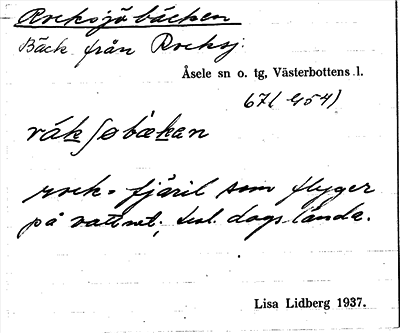 Rocksjöbäcken
Bäck från Rocksj.
Åsele sn o. tg, Västerbottens l.
67(454)
råk ſøbækan
rock = fjäril som flyger
på vattnet; dags lända.
Lisa Lidberg 1937.